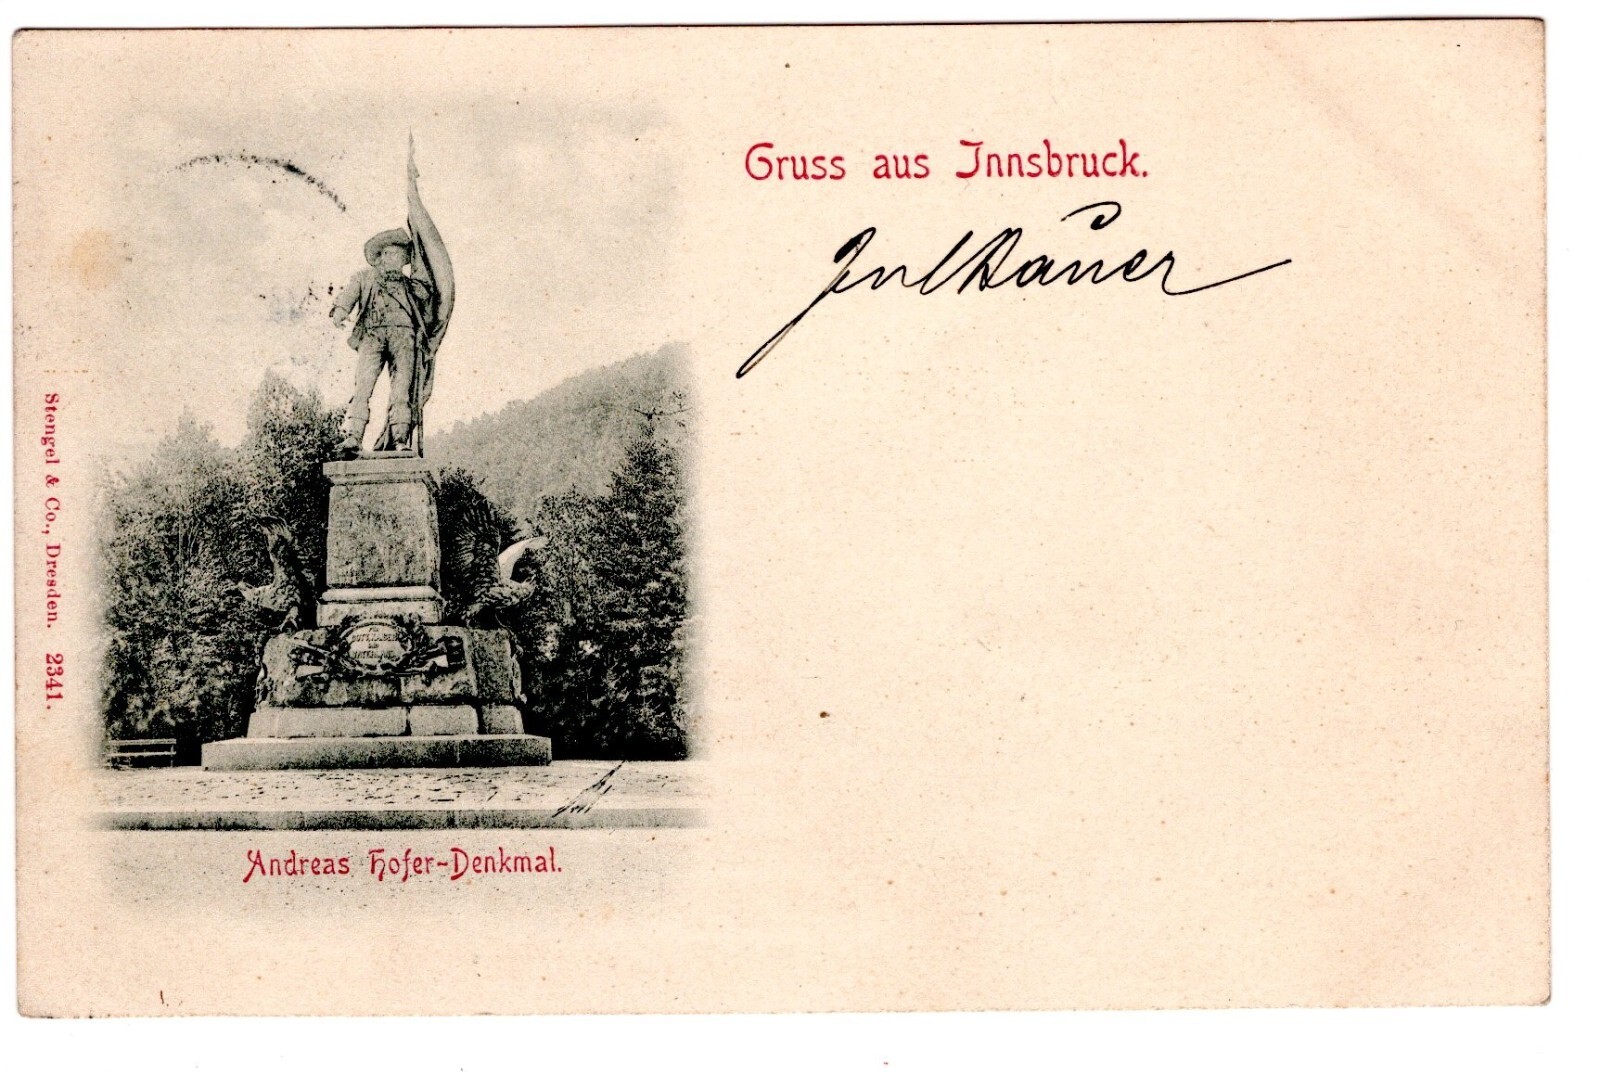 Gruss aus Innsbruck.
Stengel & Co., Dresden. 2341.
Andreas Hofer-Denkmal.